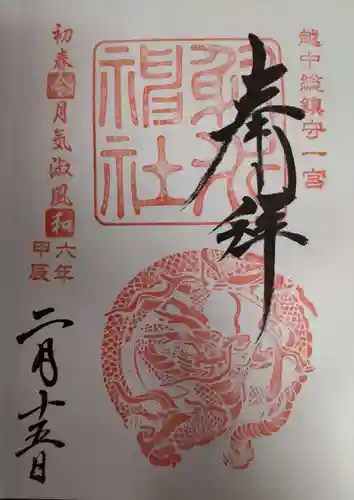 越中総鎮守一宮
奉拝
射水
神社
初春令月気淑風和
六年
甲辰
二月十五日